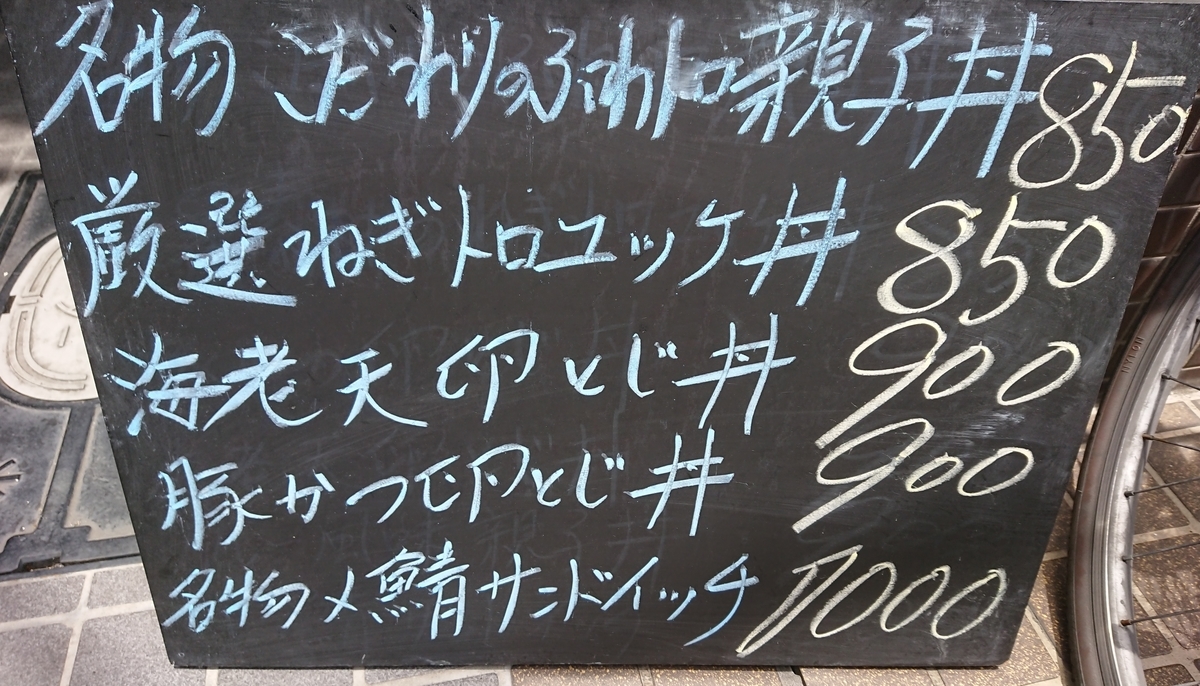 名物 こだわりのふわトロ親子丼 850
厳選ねぎトロユッケ丼 850
海老天卵とじ丼 900
豚かつ卵とじ丼 900
名物〆鯖サンドイッチ 1000